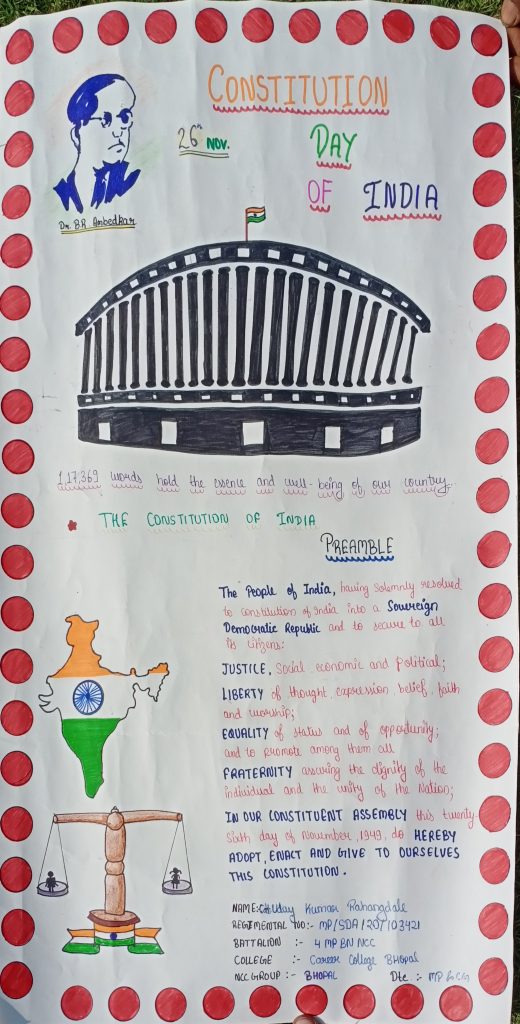 CONSTITUTION
26th NOV.
DAY
OF INDIA
Dr. B.R Ambedkar
1,17,369 words hold the essence and well-being of our country.
* THE CONSTITUTION OF INDIA
PREAMBLE
The People of India, having solemnly resolved
to constitution of India into a Sovereign
Democratic Republic and to secure to all
its citizens:
JUSTICE, Social economic and Political;
LIBERTY of thought, expression, belief, faith
and worship;
EQUALITY of status and of opportunity;
and to promote among them all
FRATERNITY assuring the dignity of the
individual and the unity of the Nation;
IN OUR CONSTITUENT ASSEMBLY this twenty-
sixth day of November, 1949, do HEREBY
ADOPT, ENACT AND GIVE TO OURSELVES
THIS CONSTITUTION.
NAME: Uday Kumar Rahangdale
REGIMENTAL NO:- MP/SDA/20/103421
BATTALION :- 4 MP BN NCC
COLLEGE :- Career College Bhopal
NCC GROUP :- BHOPAL Dte :- MP & CG